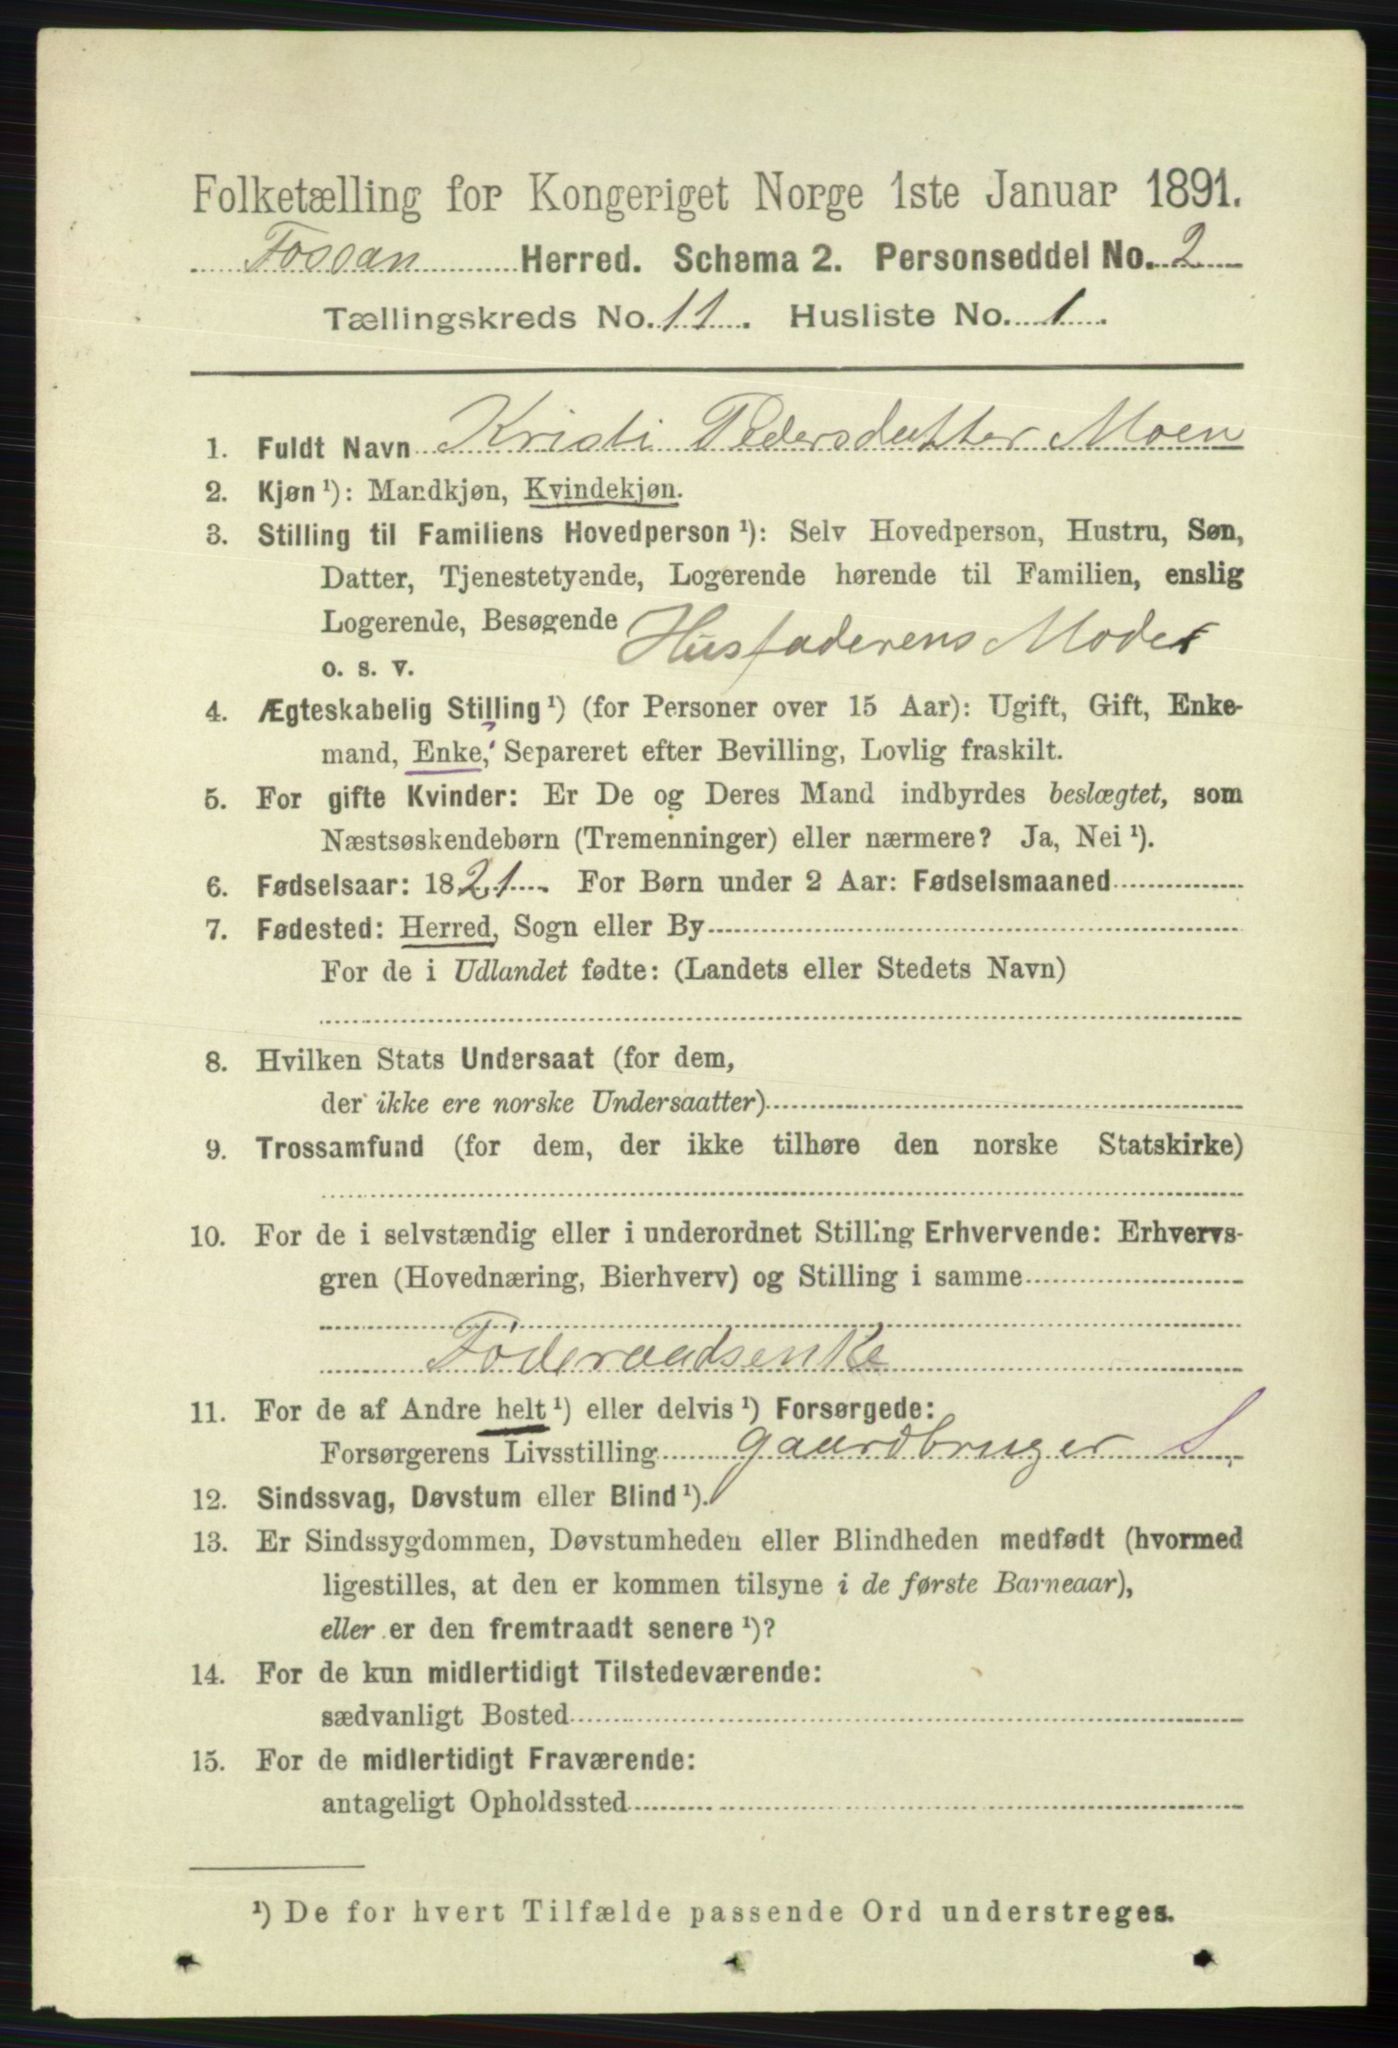 Folketælling for Kongeriget Norge 1ste Januar 1891.
Fossan Herred. Schema 2. Personseddel No. 2
Tællingskreds No. 11. Husliste No. 1.
1. Fuldt Navn Kristi Pedersdatter Moen
2. Kjøn ¹): Mandkjøn, Kvindekjøn.
3. Stilling til Familiens Hovedperson ¹): Selv Hovedperson, Hustru, Søn,
Datter, Tjenestetyende, Logerende hørende til Familien, enslig
Logerende, Besøgende
o. s. v. Husfaderens Moder
4. Ægteskabelig Stilling ¹) (for Personer over 15 Aar): Ugift, Gift, Enke-
mand, Enke, Separeret efter Bevilling, Lovlig fraskilt.
5. For gifte Kvinder: Er De og Deres Mand indbyrdes beslægtet, som
Næstsøskendebørn (Tremenninger) eller nærmere? Ja, Nei ¹).
6. Fødselsaar: 1821. For Børn under 2 Aar: Fødselsmaaned
7. Fødested: Herred, Sogn eller By
For de i Udlandet fødte: (Landets eller Stedets Navn)
8. Hvilken Stats Undersaat (for dem,
der ikke ere norske Undersaatter)
9. Trossamfund (for dem, der ikke tilhøre den norske Statskirke)
10. For de i selvstændig eller i underordnet Stilling Erhvervende: Erhvervs-
gren (Hovednæring, Bierhverv) og Stilling i samme
Føderaadsenke
11. For de af Andre helt ¹) eller delvis ¹) Forsørgede:
Forsørgerens Livsstilling gaardbruger S
12. Sindssvag, Døvstum eller Blind ¹).
13. Er Sindssygdommen, Døvstumheden eller Blindheden medfødt (hvormed
ligestilles, at den er kommen tilsyne i de første Barneaar),
eller er den fremtraadt senere ¹)?
14. For de kun midlertidigt Tilstedeværende:
sædvanligt Bosted
15. For de midlertidigt Fraværende:
antageligt Opholdssted
¹) De for hvert Tilfælde passende Ord understreges.